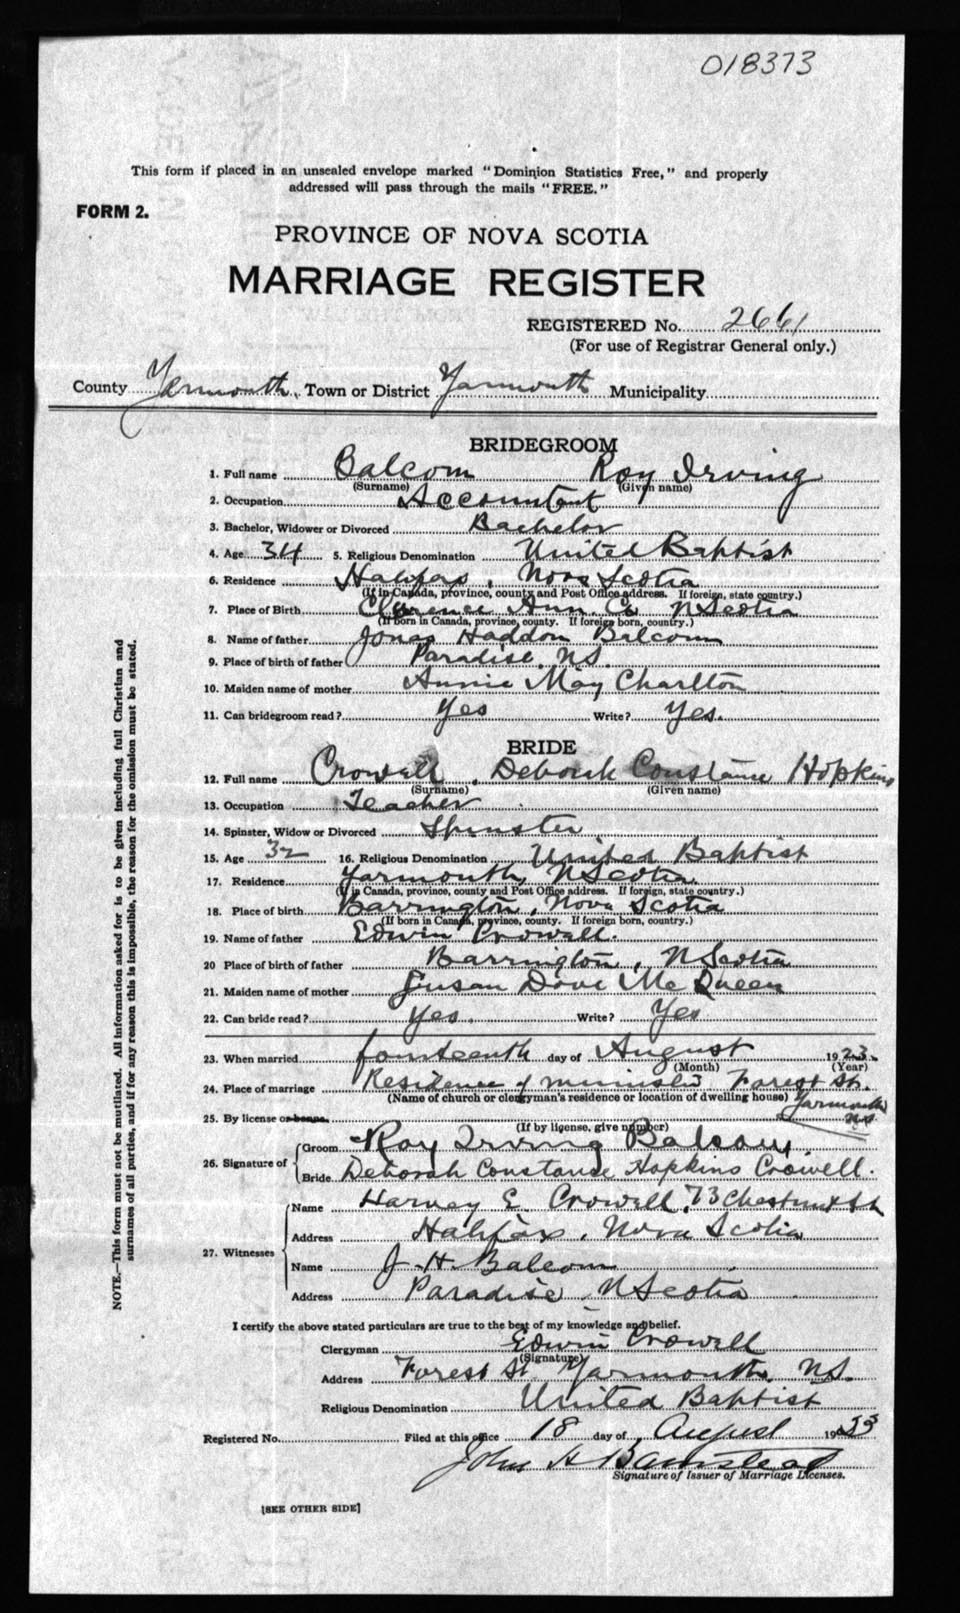 018373
This form if placed in an unsealed envelope marked "Dominion Statistics Free," and properly
addressed will pass through the mails "FREE."
FORM 2.
PROVINCE OF NOVA SCOTIA
MARRIAGE REGISTER
REGISTERED No. 2661
(For use of Registrar General only.)
County Yarmouth, Town or District Yarmouth Municipality
BRIDEGROOM
1. Full name Balcom Roy Irving
(Surname) (Given name)
2. Occupation Accountant
3. Bachelor, Widower or Divorced Bachelor
4. Age 34 5. Religious Denomination United Baptist
6. Residence Halifax, Nova Scotia
(If in Canada, province, county and Post Office address. If foreign, state country.)
7. Place of Birth Clarence Ann. Co N Scotia
(If born in Canada, province, county. If foreign born, country.)
8. Name of father Jonas Haddon Balcom
9. Place of birth of father Paradise, N.S.
10. Maiden name of mother Annie May Charlton
11. Can bridegroom read? Yes Write? Yes.
BRIDE
12. Full name Crowell, Deborah Constance Hopkins
(Surname) (Given name)
13. Occupation Teacher
14. Spinster, Widow or Divorced Spinster
15. Age 32 16. Religious Denomination United Baptist
17. Residence Yarmouth, N Scotia
(If in Canada, province, county and Post Office address. If foreign, state country.)
18. Place of birth Barrington, Nova Scotia
(If born in Canada, province, county. If foreign born, country.)
19. Name of father Edwin Crowell.
20 Place of birth of father Barrington, N Scotia
21. Maiden name of mother Susan Dove McQueen
22. Can bride read? Yes. Write? Yes
23. When married fourteenth day of August 1923.
(Month) (Year)
24. Place of marriage Residence of minister Forest St.
(Name of church or clergyman's residence or location of dwelling house) Yarmouth
25. By license or banns. NS
(If by license, give number)
26. Signature of
Groom Roy Irving Balcom
Bride Deborah Constance Hopkins Crowell.
27. Witnesses
Name Harvey E. Crowell, 73 Chestnut St
Address Halifax, Nova Scotia
Name J. H. Balcom
Address Paradise, N Scotia
I certify the above stated particulars are true to the best of my knowledge and belief.
Clergyman Edwin Crowell
(Signature)
Address Forest St Yarmouth, N.S.
Religious Denomination United Baptist
Registered No. Filed at this office 18 day of August 1923
John H
Signature of Issuer of Marriage Licenses.
[SEE OTHER SIDE]
NOTE.—This form must not be mutilated. All information asked for is to be given including full Christian and
surnames of all parties, and if for any reason this is impossible, the reason for the omission must be stated.